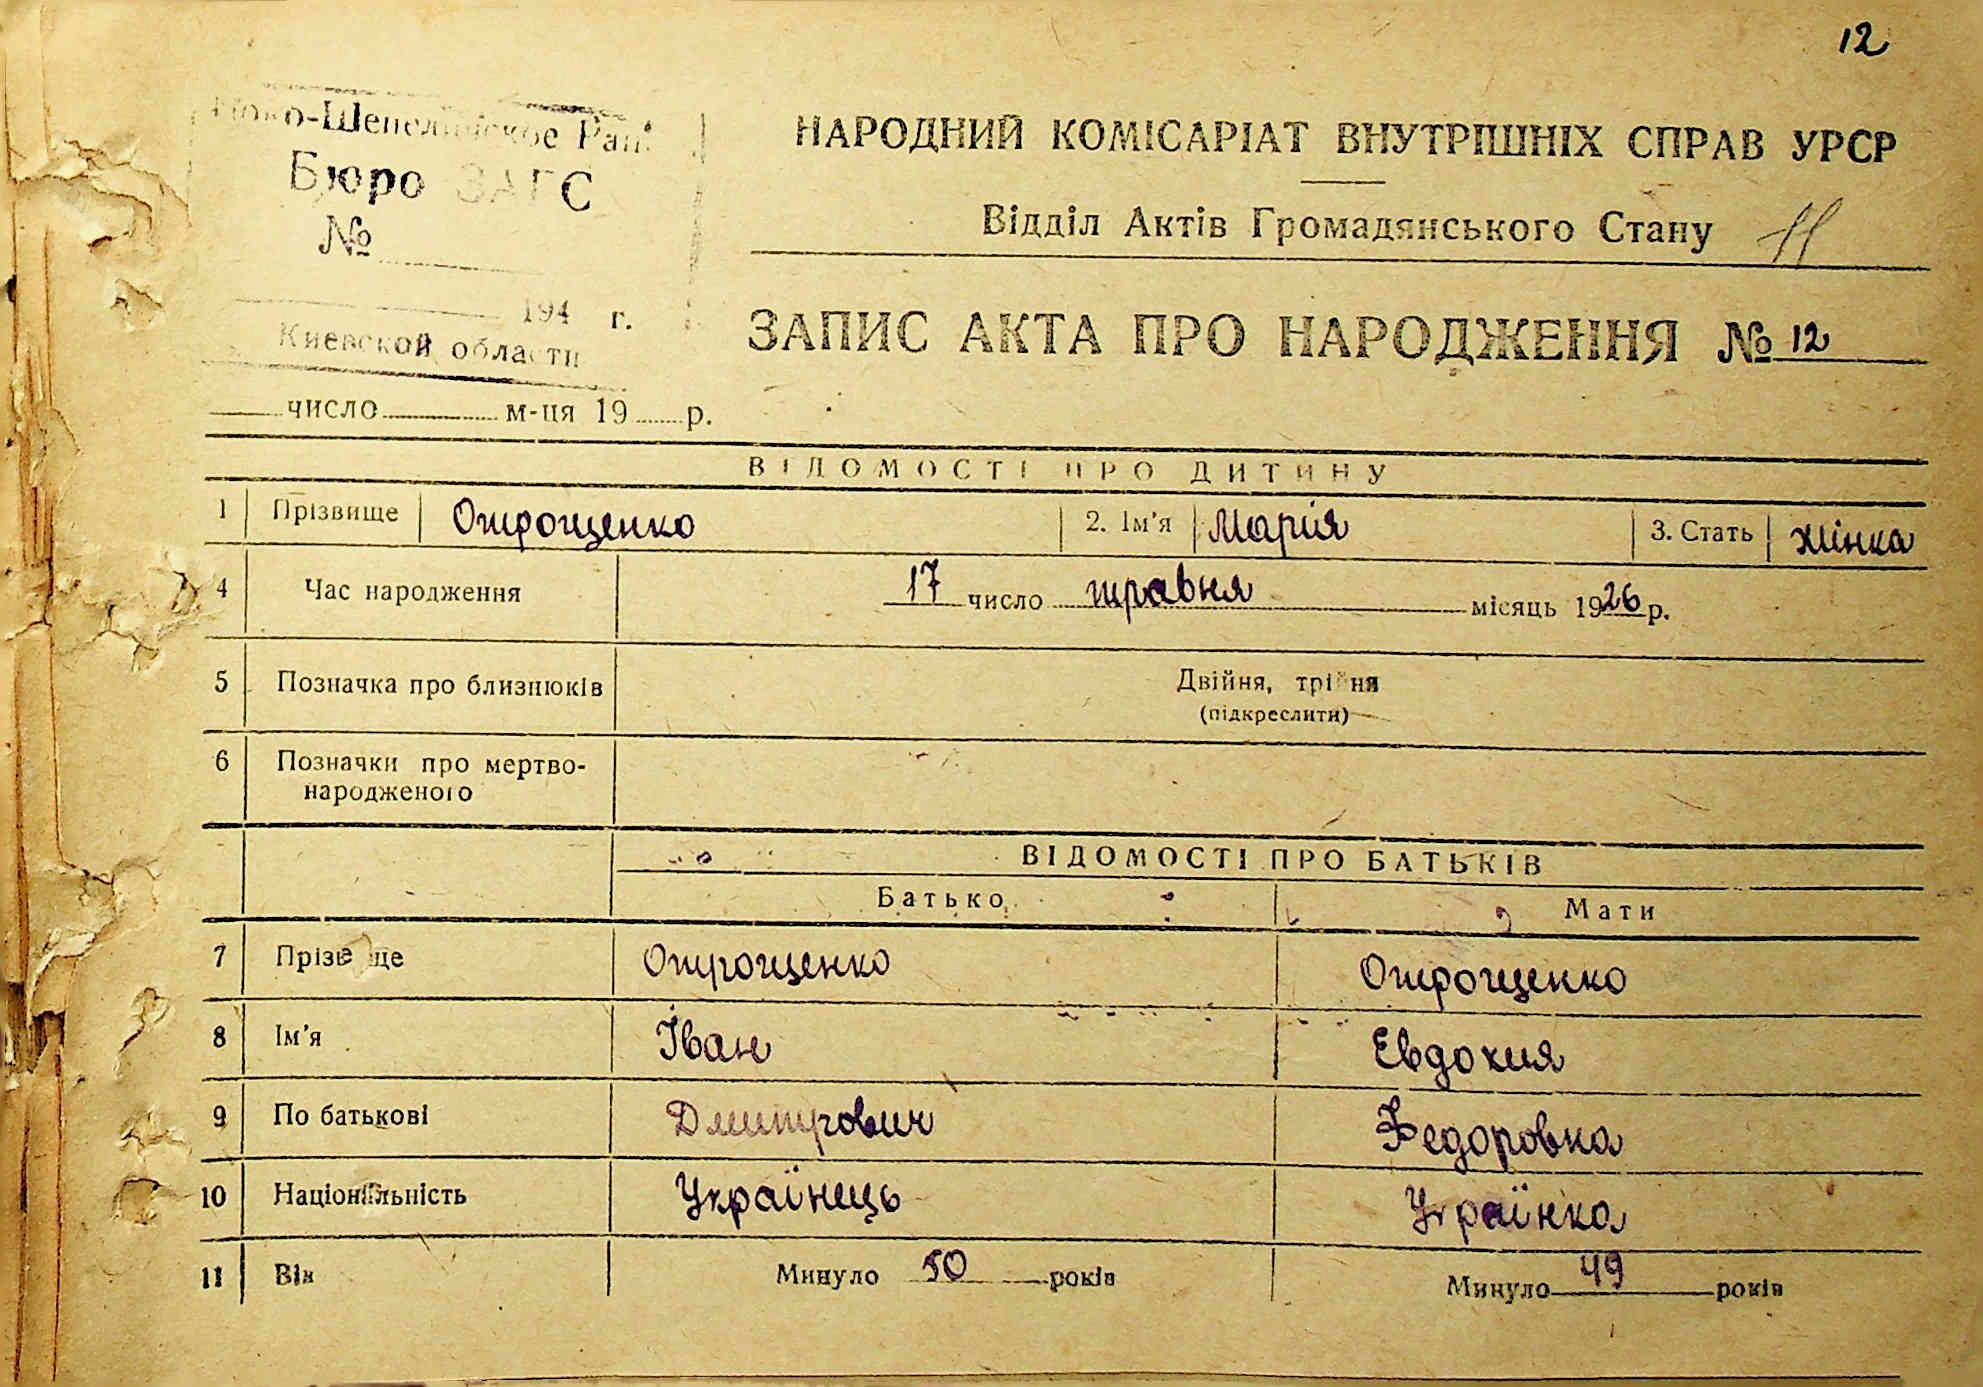 12
Ново-Шепелическое Рай.
Бюро ЗАГС
№
194 г.
Киевской области
НАРОДНИЙ КОМІСАРІАТ ВНУТРІШНІХ СПРАВ УРСР
Відділ Актів Громадянського Стану 11
ЗАПИС АКТА ПРО НАРОДЖЕННЯ № 12
число м-ця 19 р.
ВІДОМОСТІ ПРО ДИТИНУ
1 Прізвище Отрощенко 2. Ім'я Марія 3. Стать жінка
4 Час народження 17 число травня місяць 1926 р.
5 Позначка про близнюків Двійня, трійня
(підкреслити)
6 Позначки про мертво-
народженого
ВІДОМОСТІ ПРО БАТЬКІВ
Батько Мати
7 Прізвище Отрощенко Отрощенко
8 Ім'я Іван Евдокия
9 По батькові Дмитрович Федоровна
10 Національність Українець Українка
11 Вік Минуло 50 років Минуло 49 років